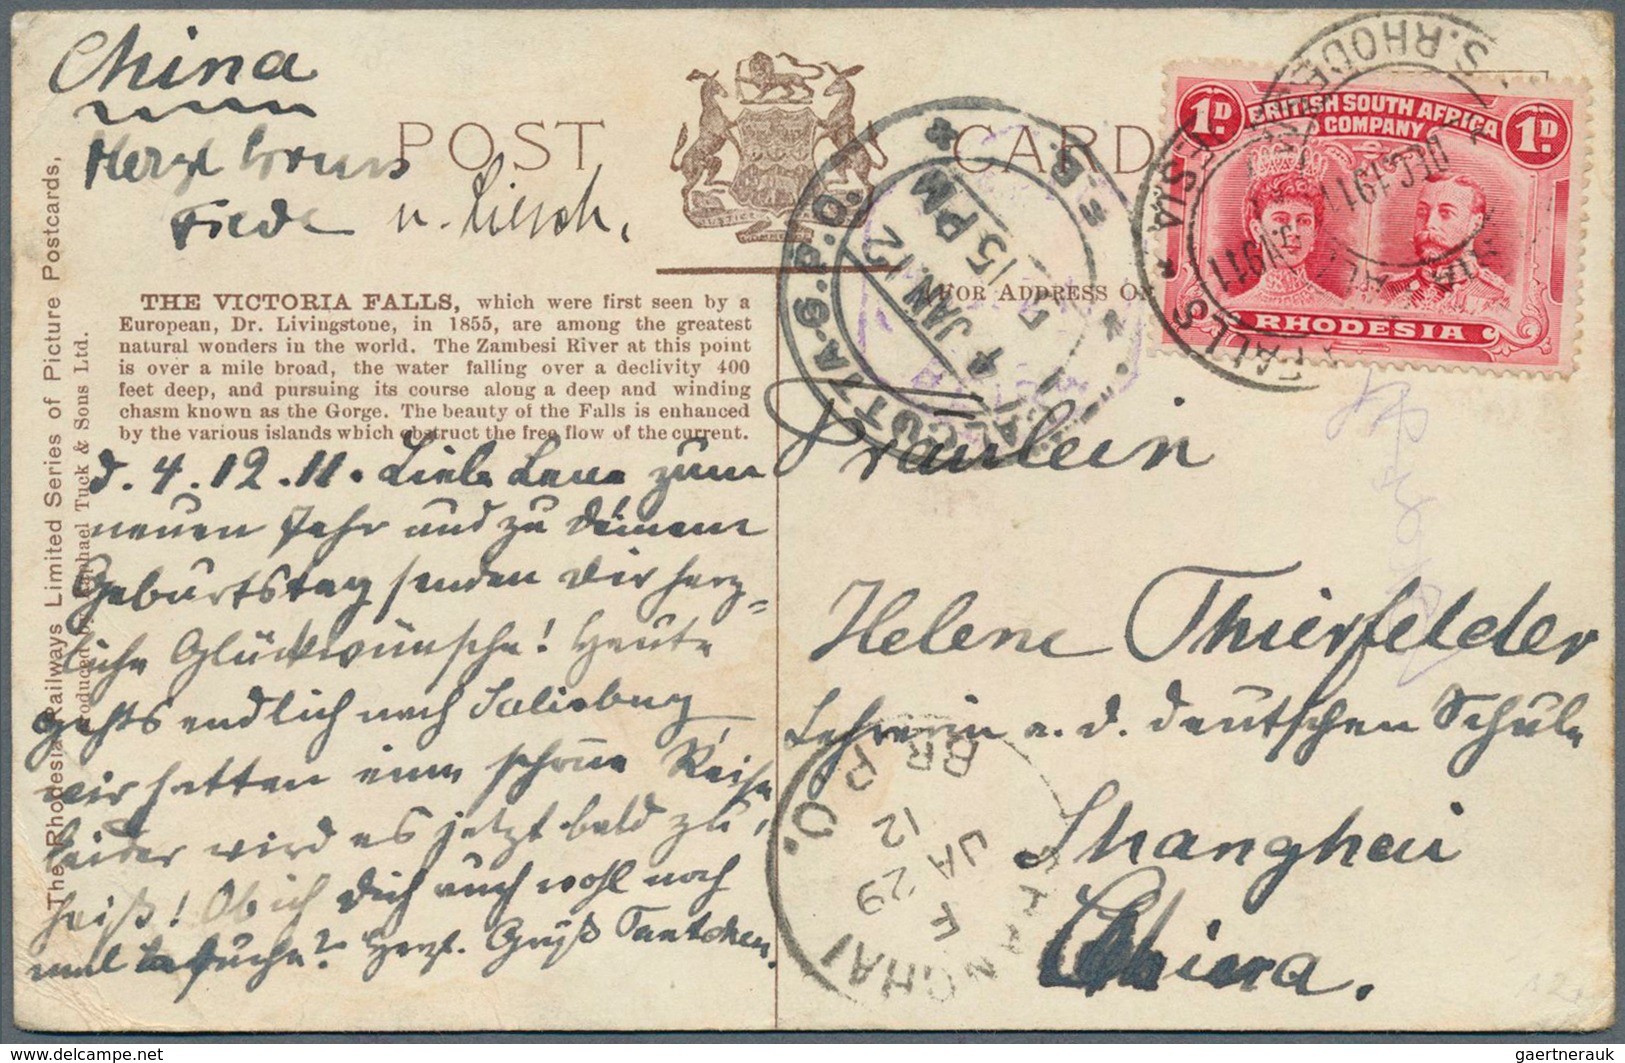 China
Herzl. Gruss
u. Liesch.
POST CARD
JUSTICE
COMMERCE
FREEDOM
THE VICTORIA FALLS, which were first seen by a
European, Dr. Livingstone, in 1855, are among the greatest
natural wonders in the world. The Zambesi River at this point
is over a mile broad, the water falling over a declivity 400
feet deep, and pursuing its course along a deep and winding
chasm known as the Gorge. The beauty of the Falls is enhanced
by the various islands which obstruct the free flow of the current.
The Rhodesia Railways Limited Series of Picture Postcards,
Produced by Raphael Tuck & Sons Ltd.
d. 4.12.11. Liebe Lene zum
neuen Jahr und zu deinem
Geburtstag senden wir herz=
liche Glückwünsche! Heute
gehts endlich nach Salisbury
wir hatten eine schöne Reise
leider wird es jetzt bald zu
heiß! Ob ich Dich auch wohl noch
mal besuche? Herzl. Gruß Tantchen.
FOR ADDRESS ON
BRITISH SOUTH AFRICA
COMPANY
1D. 1D.
RHODESIA
S. RHODESIA
FALLS
DEC 1911
CALCUTTA G.P.O.
4 JAN. 12
7 15 PM
Fräulein
Helene Thierfelder
Lehrerin a. d. deutschen Schule
Shanghai
China.
SHANGHAI BR. P.O.
F
JA 29
12
© gaertnerauk on delcampe.net